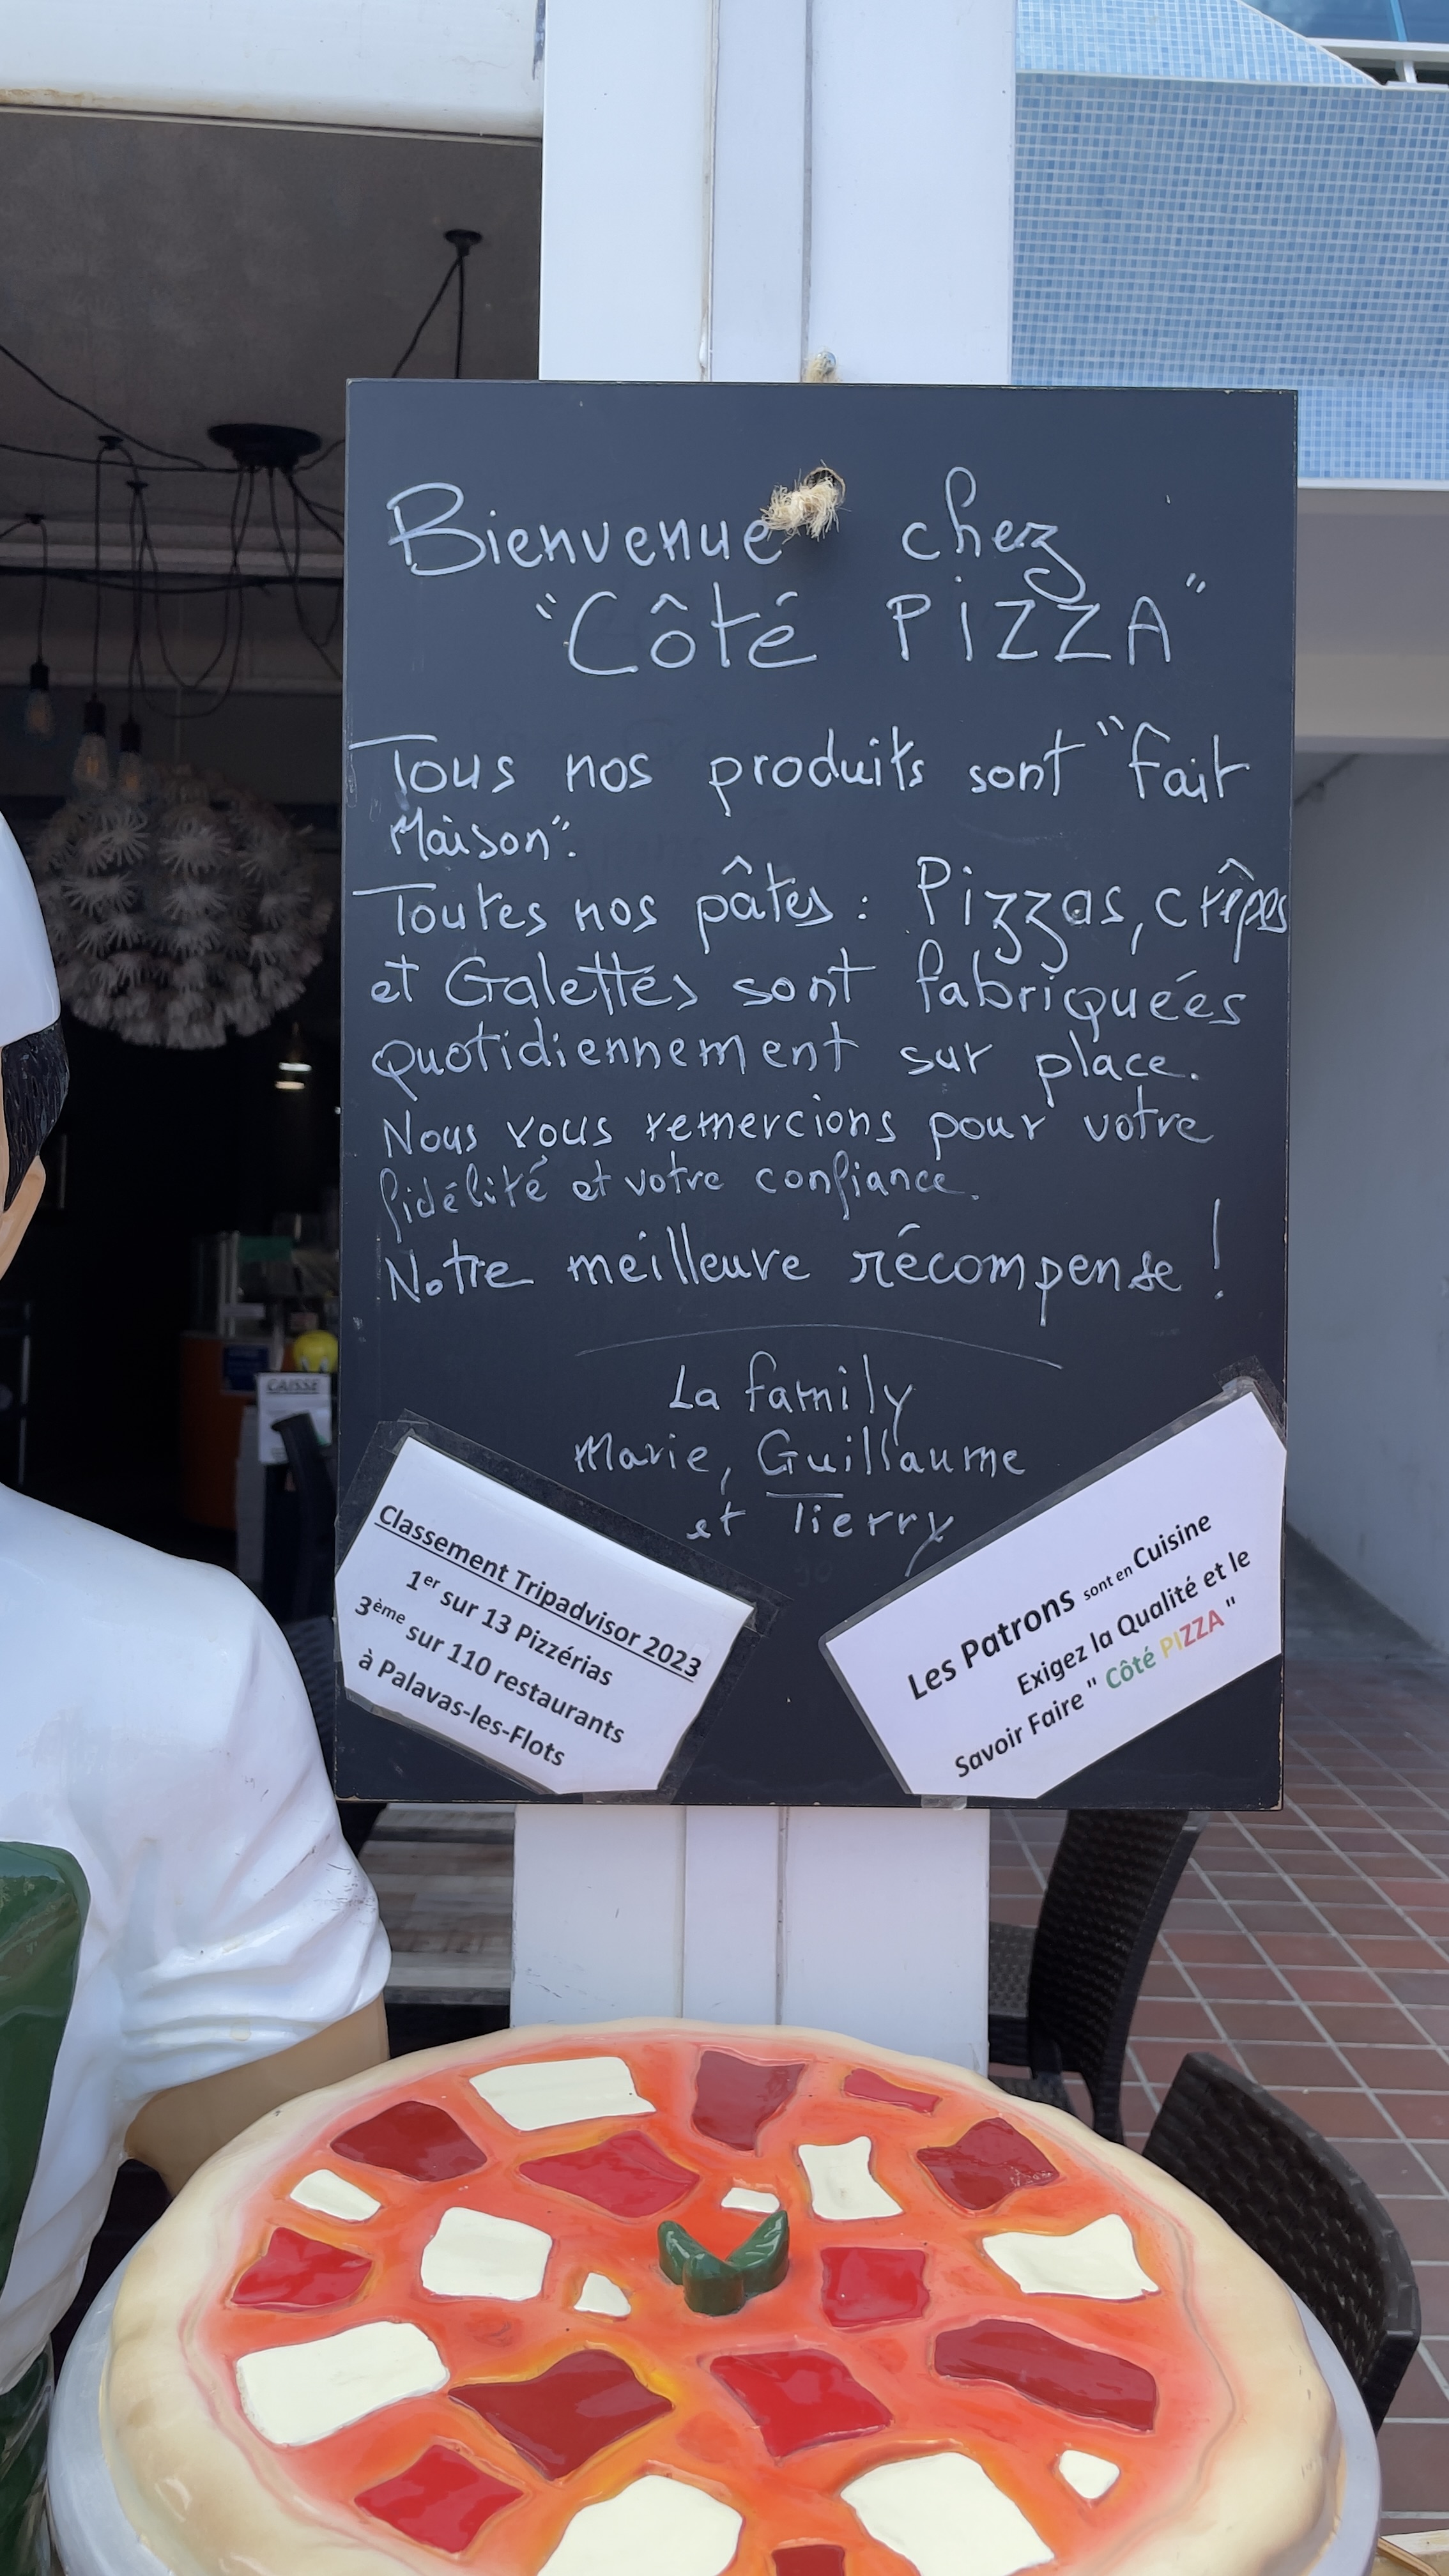 Bienvenue chez
"Côté PiZZA"
Tous nos produits sont "fait
Maison".
Toutes nos pâtes : Pizzas, crêpes
et Galettes sont fabriquées
quotidiennement sur place.
Nous vous remercions pour votre
fidélité et votre confiance.
Notre meilleure récompense !
La family
Marie, Guillaume
et Tierry
Classement Tripadvisor 2023
1er sur 13 Pizzérias
3ème sur 110 restaurants
à Palavas-les-Flots
Les Patrons sont en Cuisine
Exigez la Qualité et le
Savoir Faire " Côté PIZZA "
CAISSE